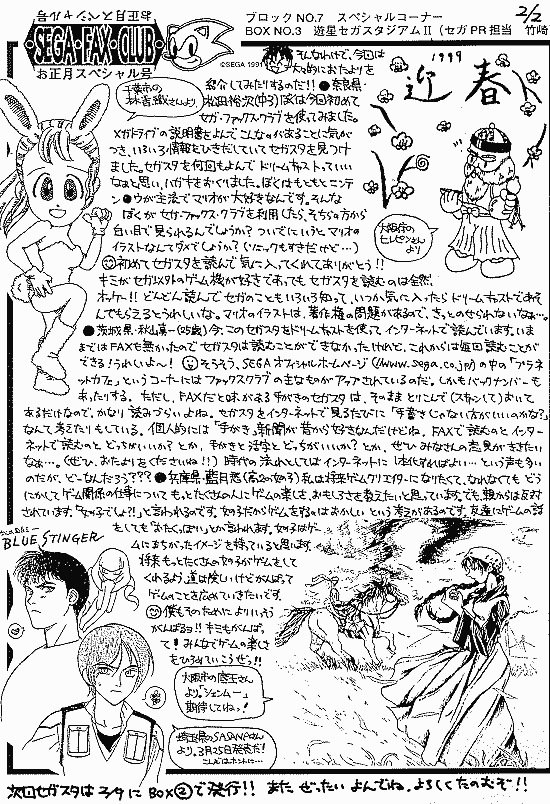 お正月スペシャル号
SEGA・FAX・CLUB
お正月スペシャル号
ブロックNO.7 スペシャルコーナー
BOX NO.3 遊星セガスタジアムⅡ(セガPR担当 竹崎
2/2
©SEGA 1991
千葉市の
1999
迎春
そんなわけで、今回は
大々的におたよりを
紹介してみたりするのだ!!●奈良県・
ぼくは今回初めて
セガ・ファックスクラブを使ってみました。
メガドライブの説明書をよんでこんなのがあることに気が
つき、いろいろ情報をひきだしていてセガスタを見つけ
ました。セガスタを何回もよんでドリームキャストっていい
なぁと思い、ハガキをおくりました。ぼくはもともとニンテン
●ウが主流でマリオが大好きなんです。そんな
ぼくがセガ・ファックス・クラブを利用したら、そちらの方から
白い目で見られるんでしょうか?ついでにいうとマリオの
イラストなんてダメでしょうか?(ソニックもすきだけど…)
大阪府の
セレピンさん
より
初めてセガスタを読んで気に入ってくれてありがとう!!
キミがセガ以外のゲーム機が好きであってもセガスタを読むのは全然
オッケー!!どんどん読んでセガのこともいろいろ知って、いつか気に入ったらドリームキャストであそ
んでもらえるとうれしいな。マリオのイラストは、著作権の問題があるので、きっとのせられないなぁ…。
●茨城県・秋山真一(25歳)今、このセガスタをドリームキャストを使ってインターネットで読んでいます。いま
まではFAXも無かったのでセガスタは読むことができなかったけれど、これからは毎回読むことが
できる!うれしいよ〜!そうそう、SEGAオフィシャルホームページ(//www.sega.co.jp)の中の「プラネ
ットカフェ」というコーナーにはファックスクラブの主なものがアップされているのだ。しかもバックナンバーも
あったりする。ただし、FAXだと味がある手がきのセガスタは、そのままとりこんで(スキャンして)おいて
あるだけなので、かなり読みづらいよね。セガスタをインターネットで見るたびに「手書きじゃない方がいいのかな?」
なんて考えたりもしている。個人的には「手がき」新聞が昔から好きなんだけどね。FAXで読むのとインター
ネットで読むのとどっちがいいか?とか、手がきと活字とどっちがいいか?とか、ぜひみなさんの意見がききたい
なぁ…。(ぜひ、おたよりをくださいね!!)時代の流れとしてはインターネットに1本化すればよい…という声も多い
のだが、ど〜なんだろう???●兵庫県・藍月悠(高2の女子)私は将来ゲームクリエイターになりたくて、なれなくてもどう
にかしてゲーム関係の仕事についてもっとたくさんの人にゲームの楽しさ、おもしろさを教えたいと思っています。でも、親からは反対
されています。「女の子でしょ?!」と言われるのです。女の子だからゲームをするのはおかしいという考えがあるのです。友達にゲームの話
をしても「おたくっぽい」とか言われます。女子はゲー
ムにまちがったイメージを持っていると思います。
将来、もっとたくさんの女の子がゲームをして
くれるよう、道は険しいけどがんばって
ゲームのことを広めていきたいです。
僕もそのためによりいっそう
がんばるヨ!!キミもがんばっ
て!みんなでゲームの楽しさ
をひろめていこうぜっ!!
BLUE STINGER
大阪市の
さん
より。「シェンムー」
期待してねっ!
埼玉県のSASANAさん
より。3月25日発売だ!
次回セガスタは2/9にBOX②で発行!!またぜったいよんでね。よろしくたのむぞ!!